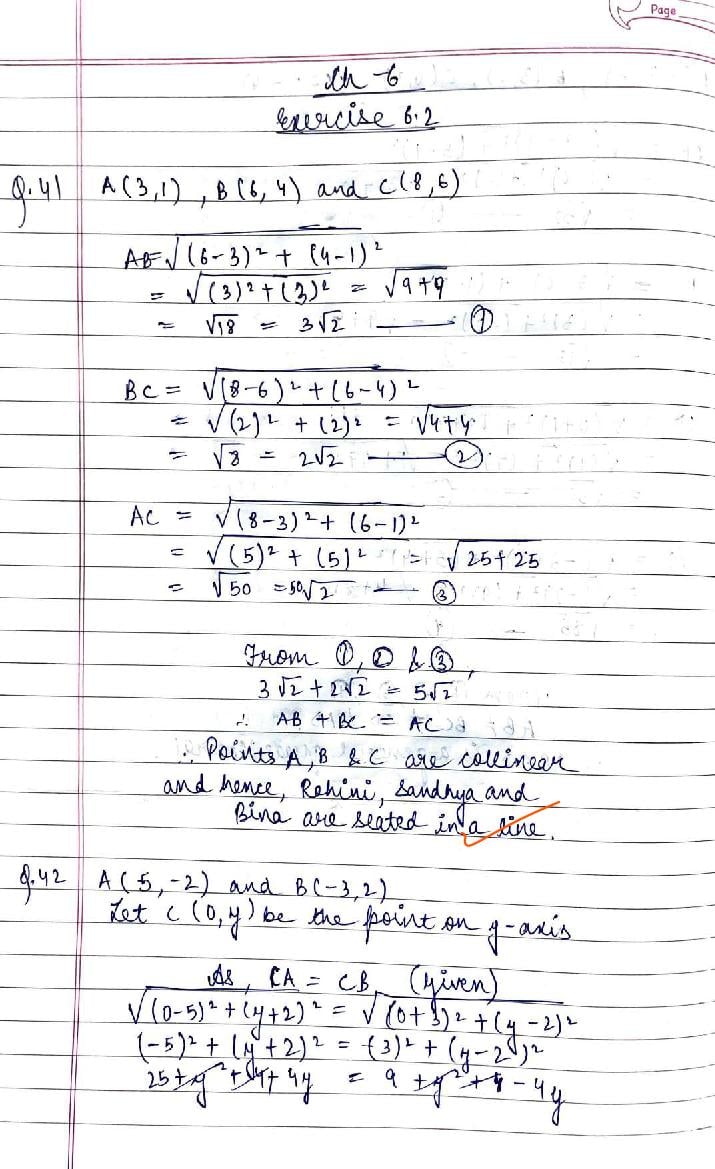 Page
Ch-6
Exercise 6.2
Q.41 A(3,1), B(6,4) and C(8,6)
AB=√(6-3)² + (4-1)²
= √(3)²+(3)² = √9+9
= √18 = 3√2 — ①
BC = √(8-6)²+(6-4)²
= √(2)² + (2)² = √4+4
= √8 = 2√2 — ②
AC = √(8-3)²+ (6-1)²
= √(5)² + (5)² = √25+25
= √50 = 50√2 — ③
From ①, ② & ③,
3√2 + 2√2 = 5√2
∴ AB + BC = AC
∴ Points A, B & C are collinear
and hence, Rehini, Sandhya and
Bina are seated in a line.
Q.42 A(5,-2) and B(-3,2)
Let C(0,y) be the point on y-axis
As, CA = CB (given)
√(0-5)²+(y+2)² = √(0+3)²+(y-2)²
(-5)² + (y+2)² = (3)² + (y-2)²
25+y²+4+4y = 9+y²+4-4y